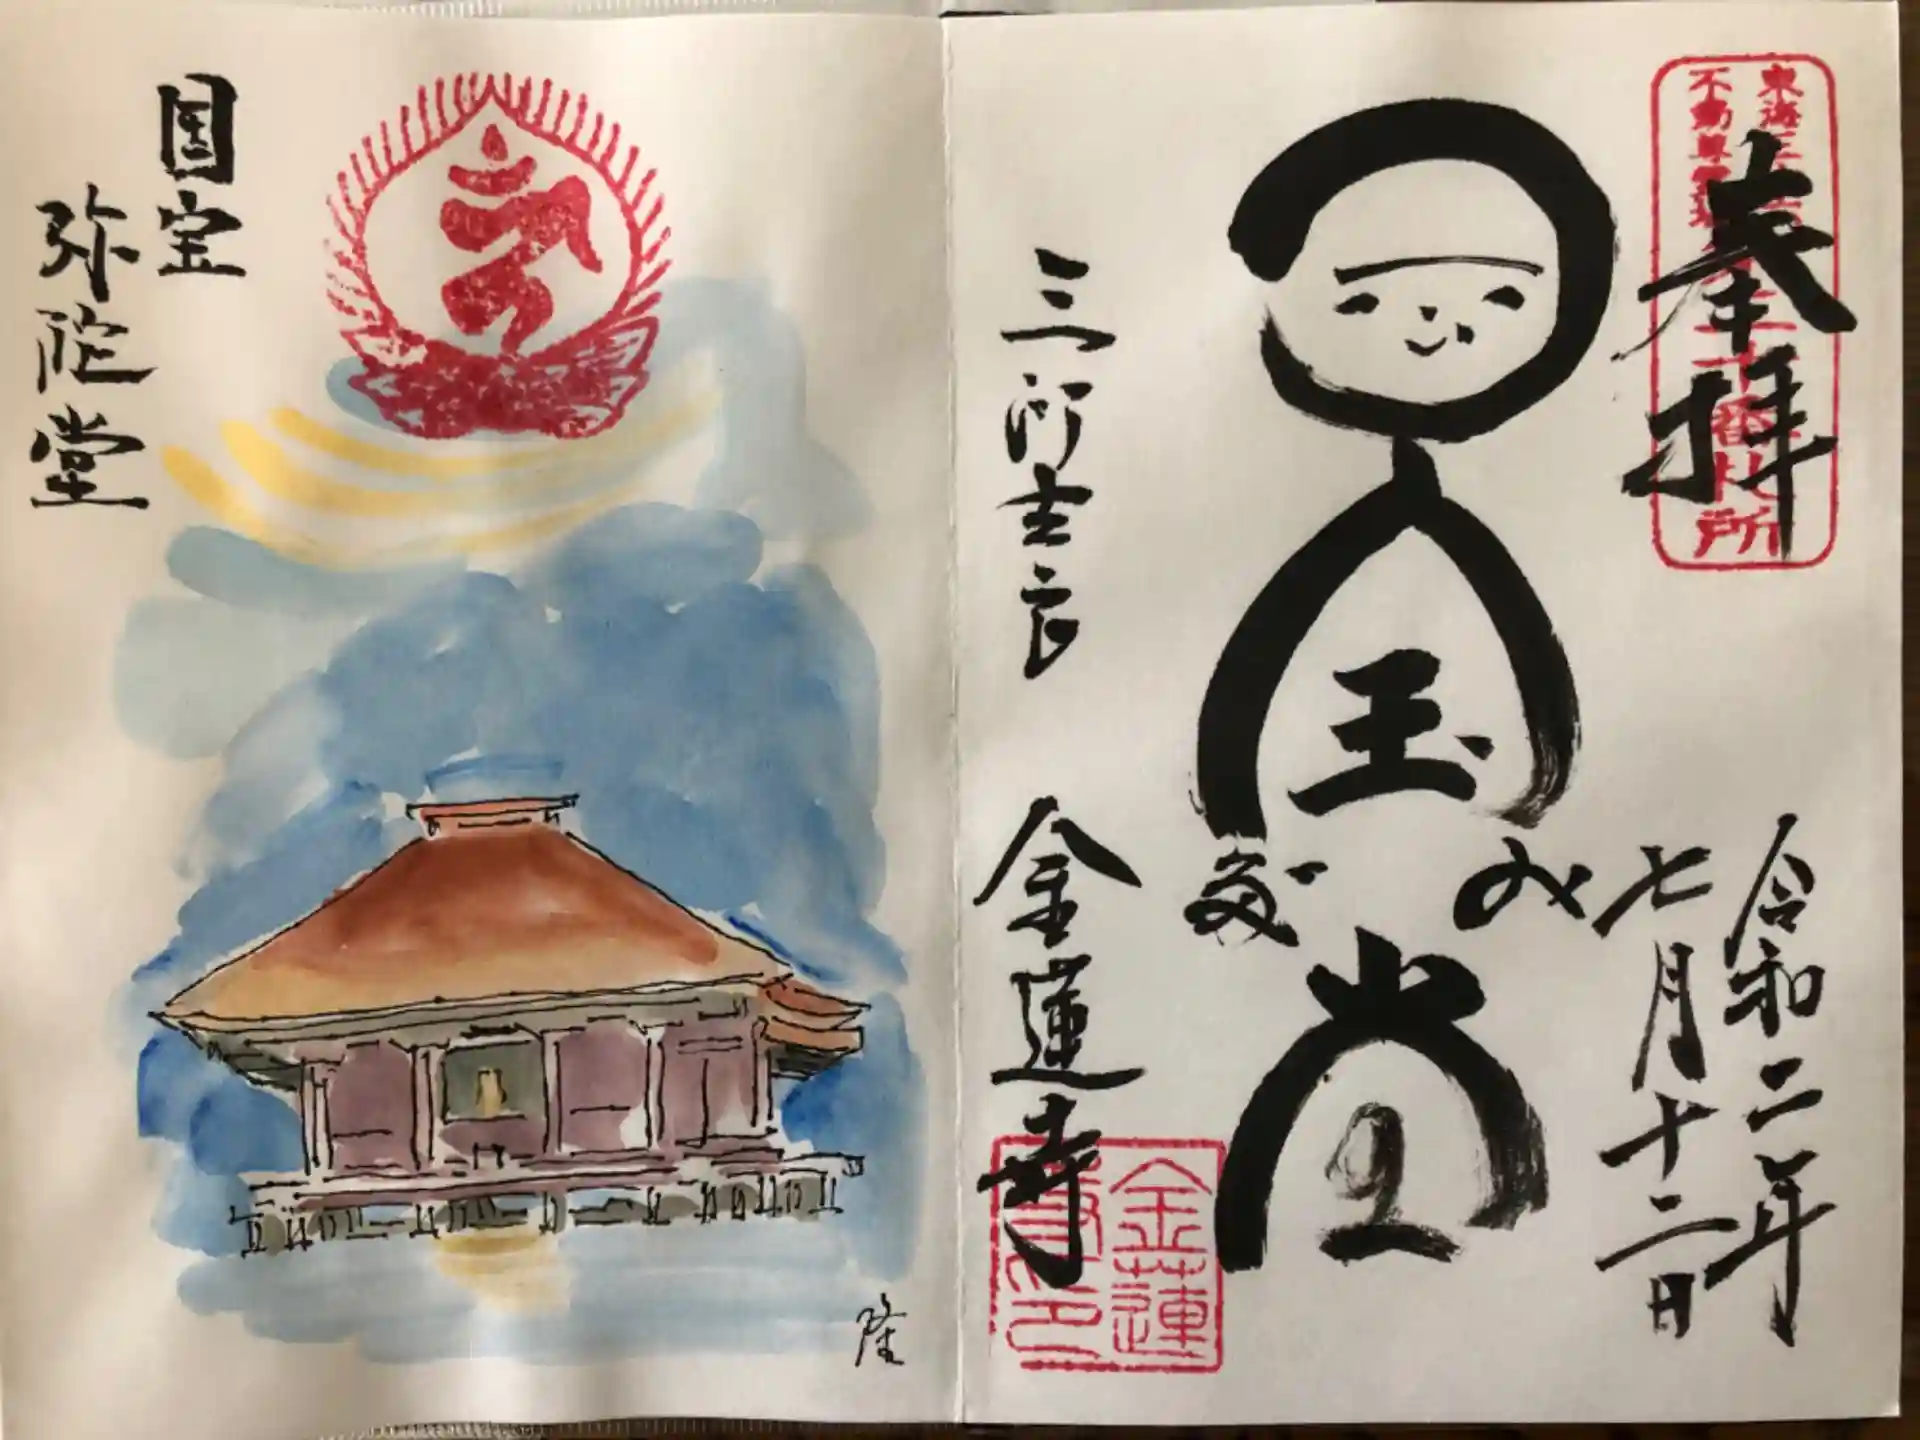 奉拝
東海三
不動尊霊
番札所
令和二年
七月十二日
玉
み
堂
三河吉良
金蓮寺
金蓮
寺印
国宝
弥陀堂
隆